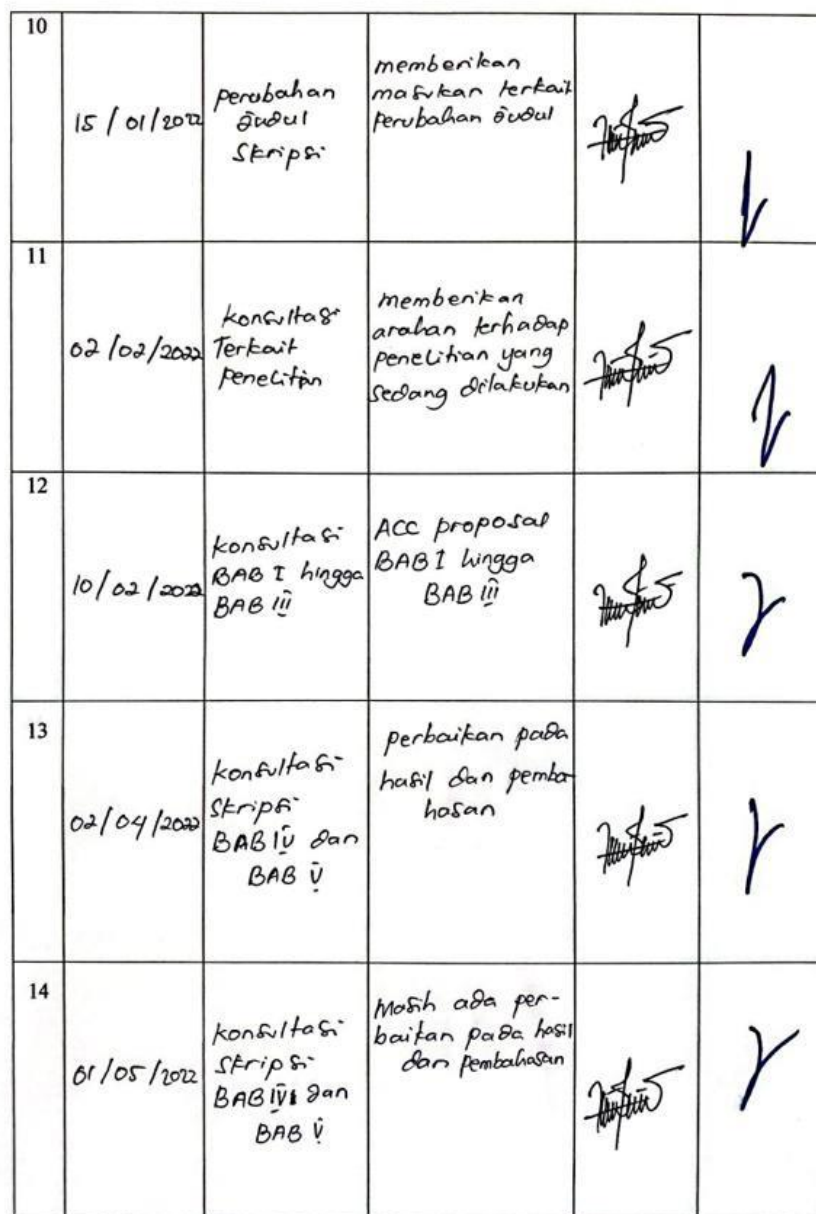 10
15/01/2022
perubahan
judul
skripsi
memberikan
masukan terkait
perubahan judul
11
02/02/2022
konsultasi
Terkait
penelitian
memberikan
arahan terhadap
penelitian yang
sedang dilakukan
12
10/02/2022
konsultasi
BAB I hingga
BAB III
ACC proposal
BAB I hingga
BAB III
13
02/04/2022
konsultasi
skripsi
BAB IV dan
BAB V
perbaikan pada
hasil dan pemba-
hasan
14
01/05/2022
konsultasi
skripsi
BAB IV dan
BAB V
Masih ada per-
baikan pada hasil
dan pembahasan